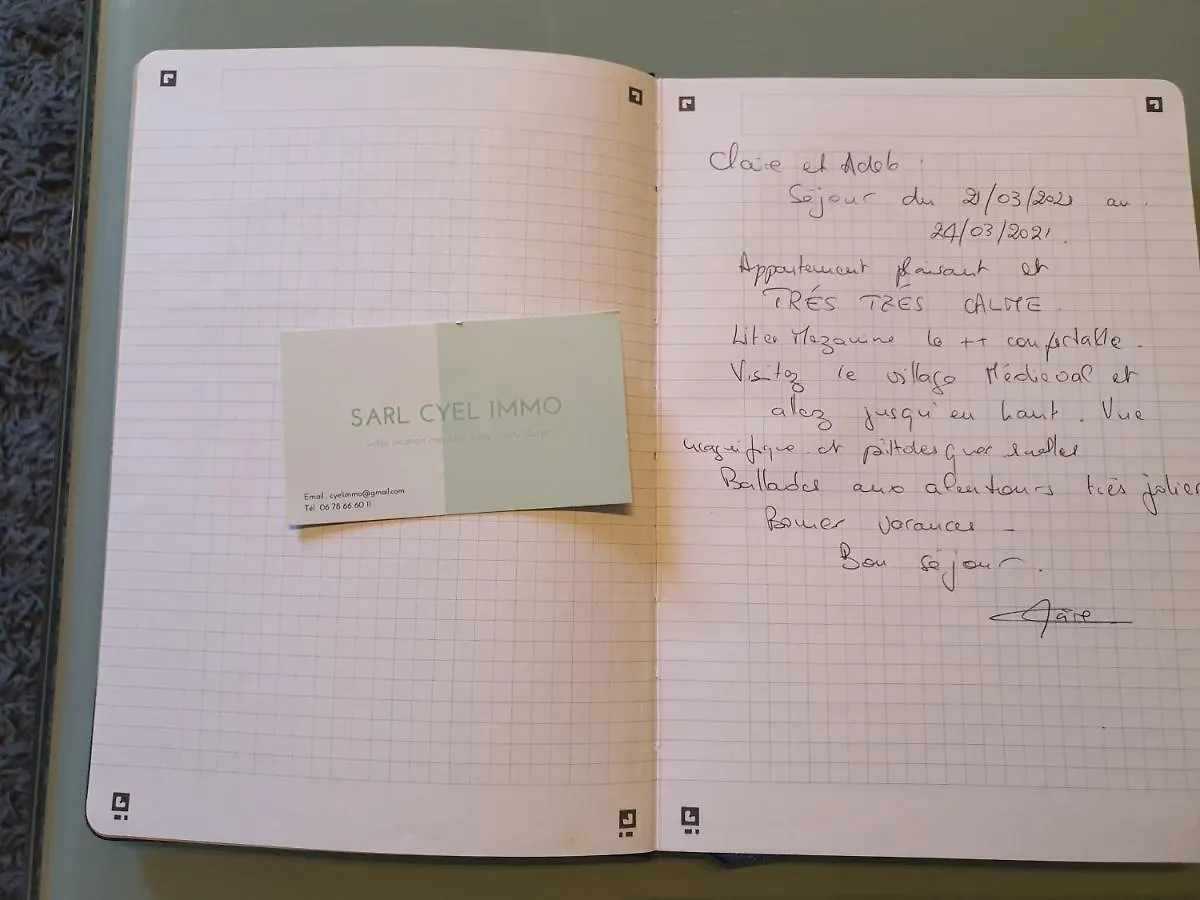 SARL CYEL IMMO
Email : cyelimmo@gmail.com
Tél 06 78 66 60 11
Claire et Adeb :
Séjour du 21/03/2021 au
24/03/2021.
Appartement plaisant et
TRÉS TRÉS CALME.
Liter Mezanine le ++ confortable.
Visitez le village Médieval et
alez jusqu'en haut. Vue
magnifique et ruelles
Ballades aux alentours très jolies
Bonnes vacances -
Bon séjour.